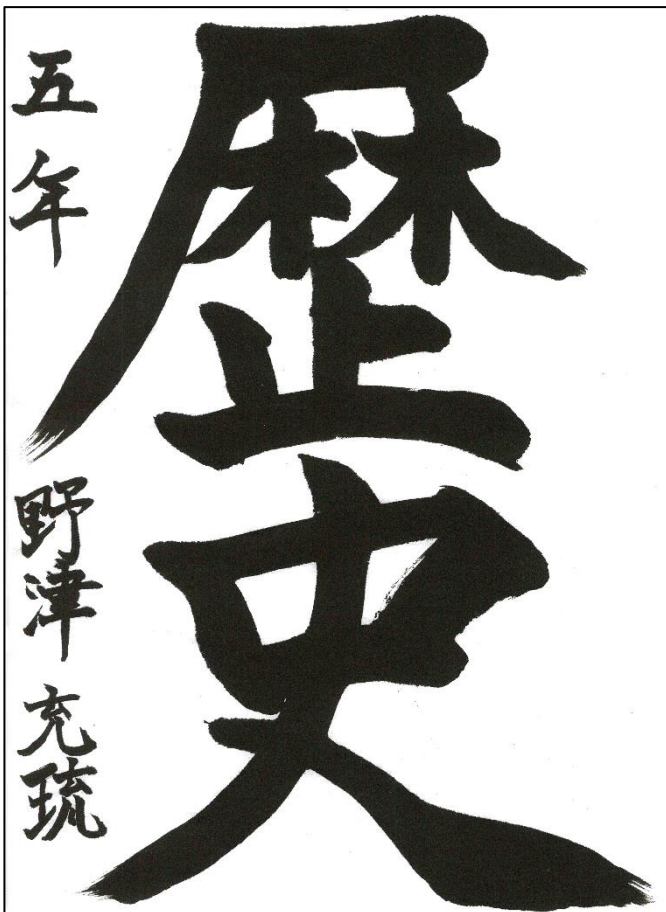 歴史
五年 野津充琉